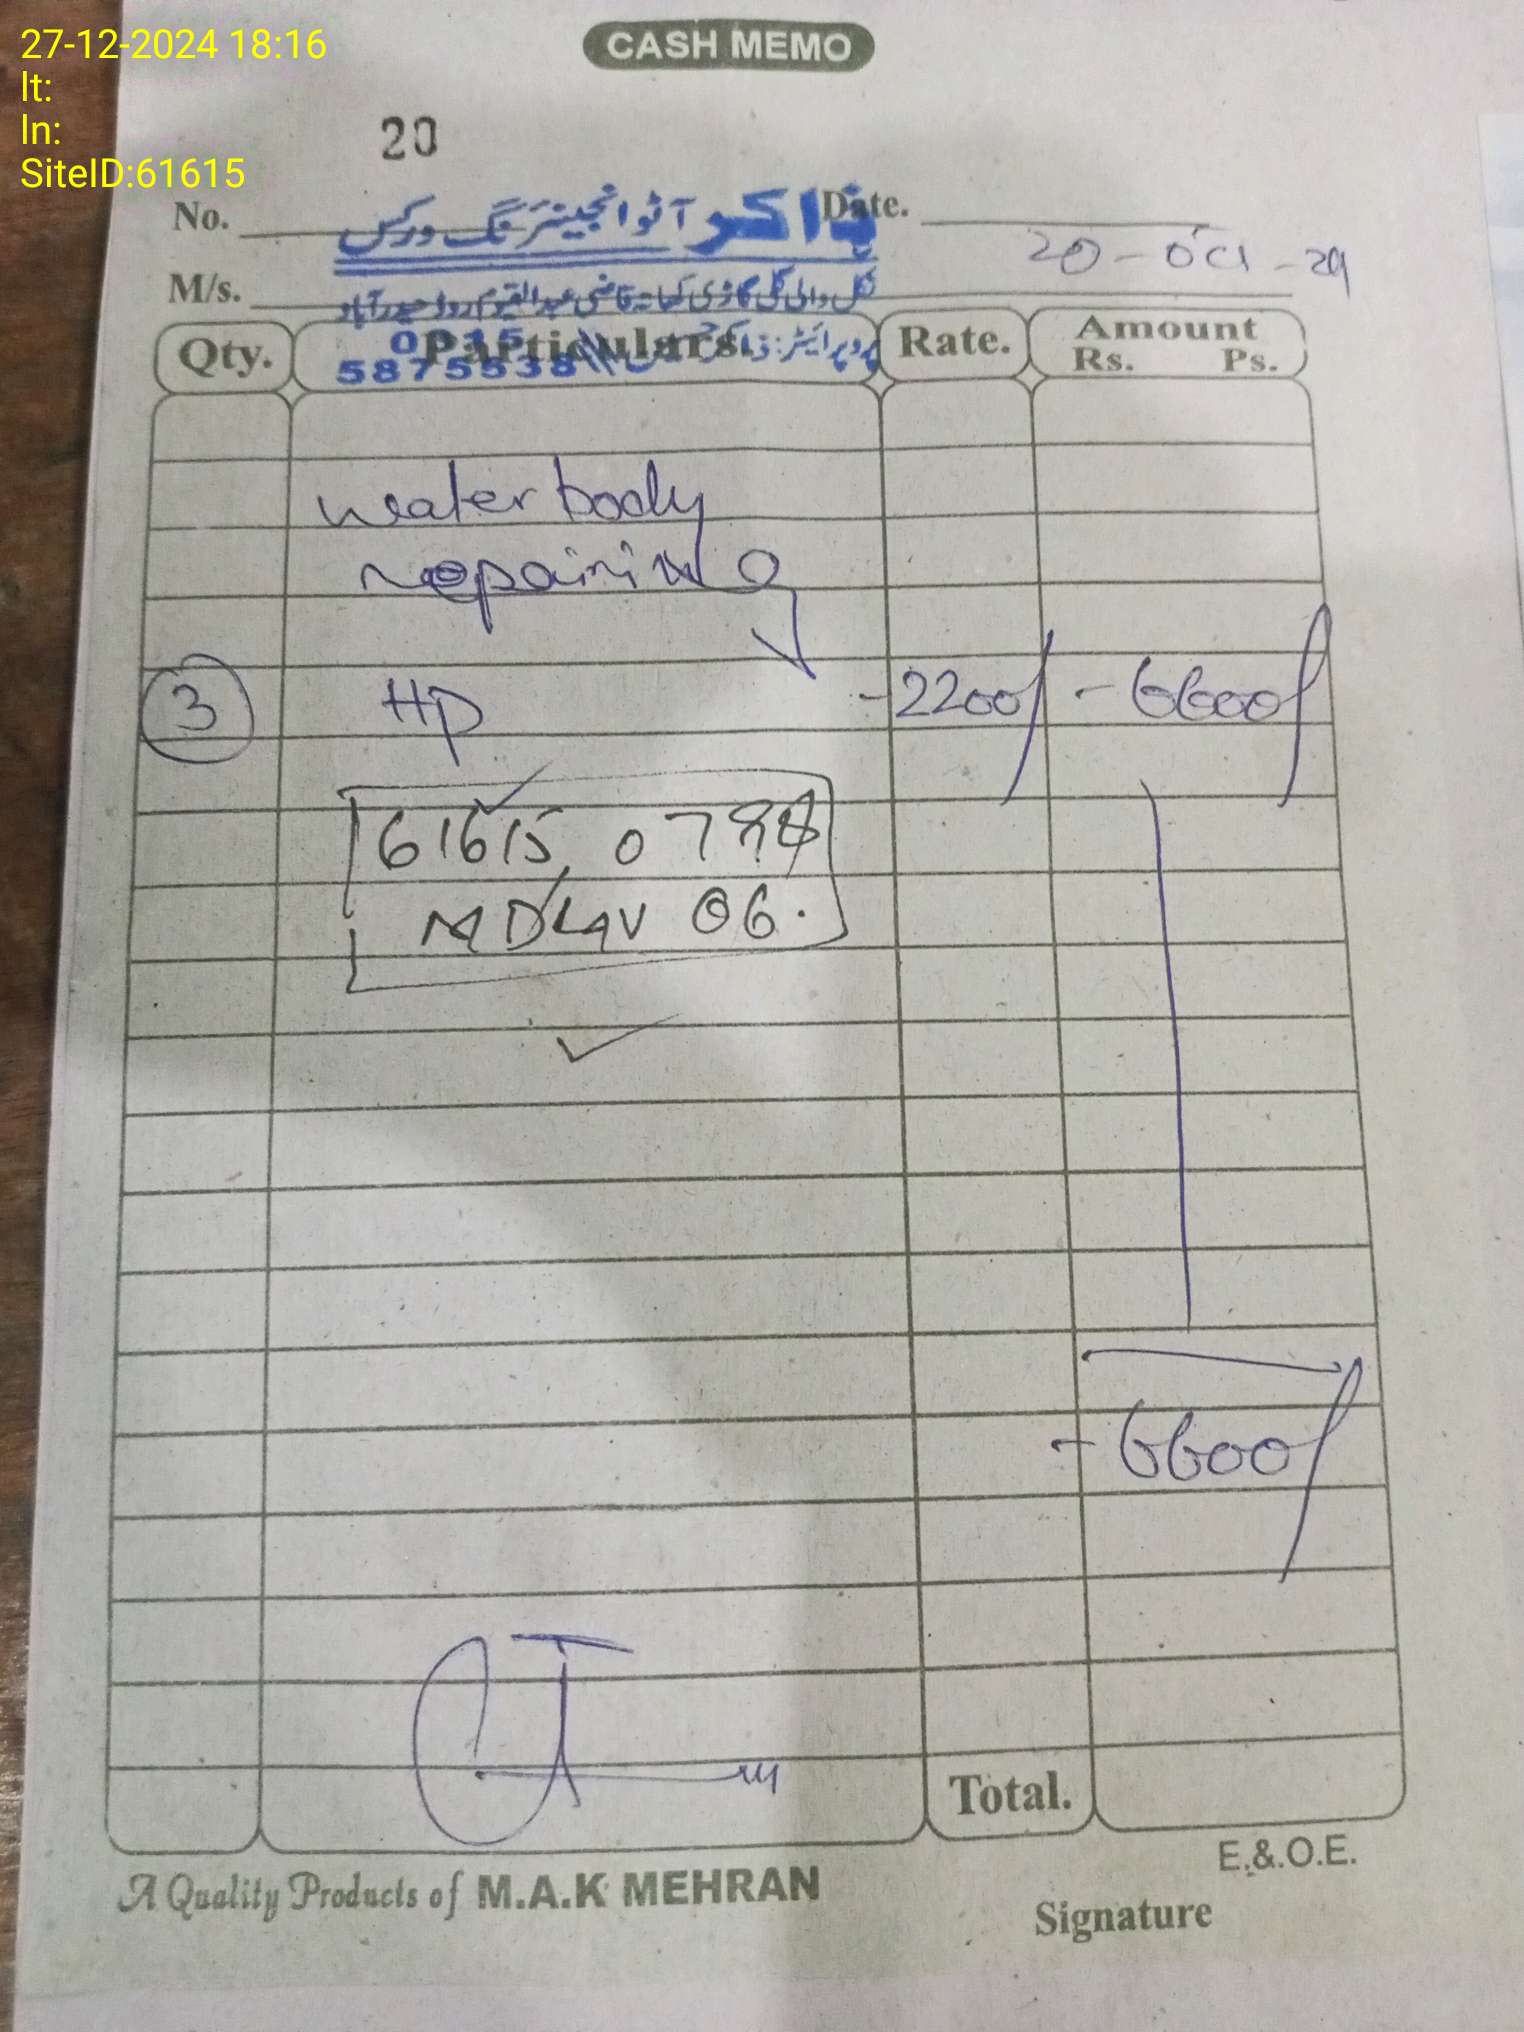 27-12-2024 18:16
lt:
ln:
SiteID:61615
CASH MEMO
20
No.
Date.
ذاکر آٹو انجینئرنگ ورکس
20-Oct-24
M/s.
گاڑی کھاتہ قاضی عبدالقیوم روڈ حیدرآباد
Qty. Particulars. Rate. Amount
Rs. Ps.
0315
5875538
water body
repairing
3 HP -2200/ -6600/
61615
06.
-6600/
Total.
E.&.O.E.
A Quality Products of M.A.K MEHRAN
Signature